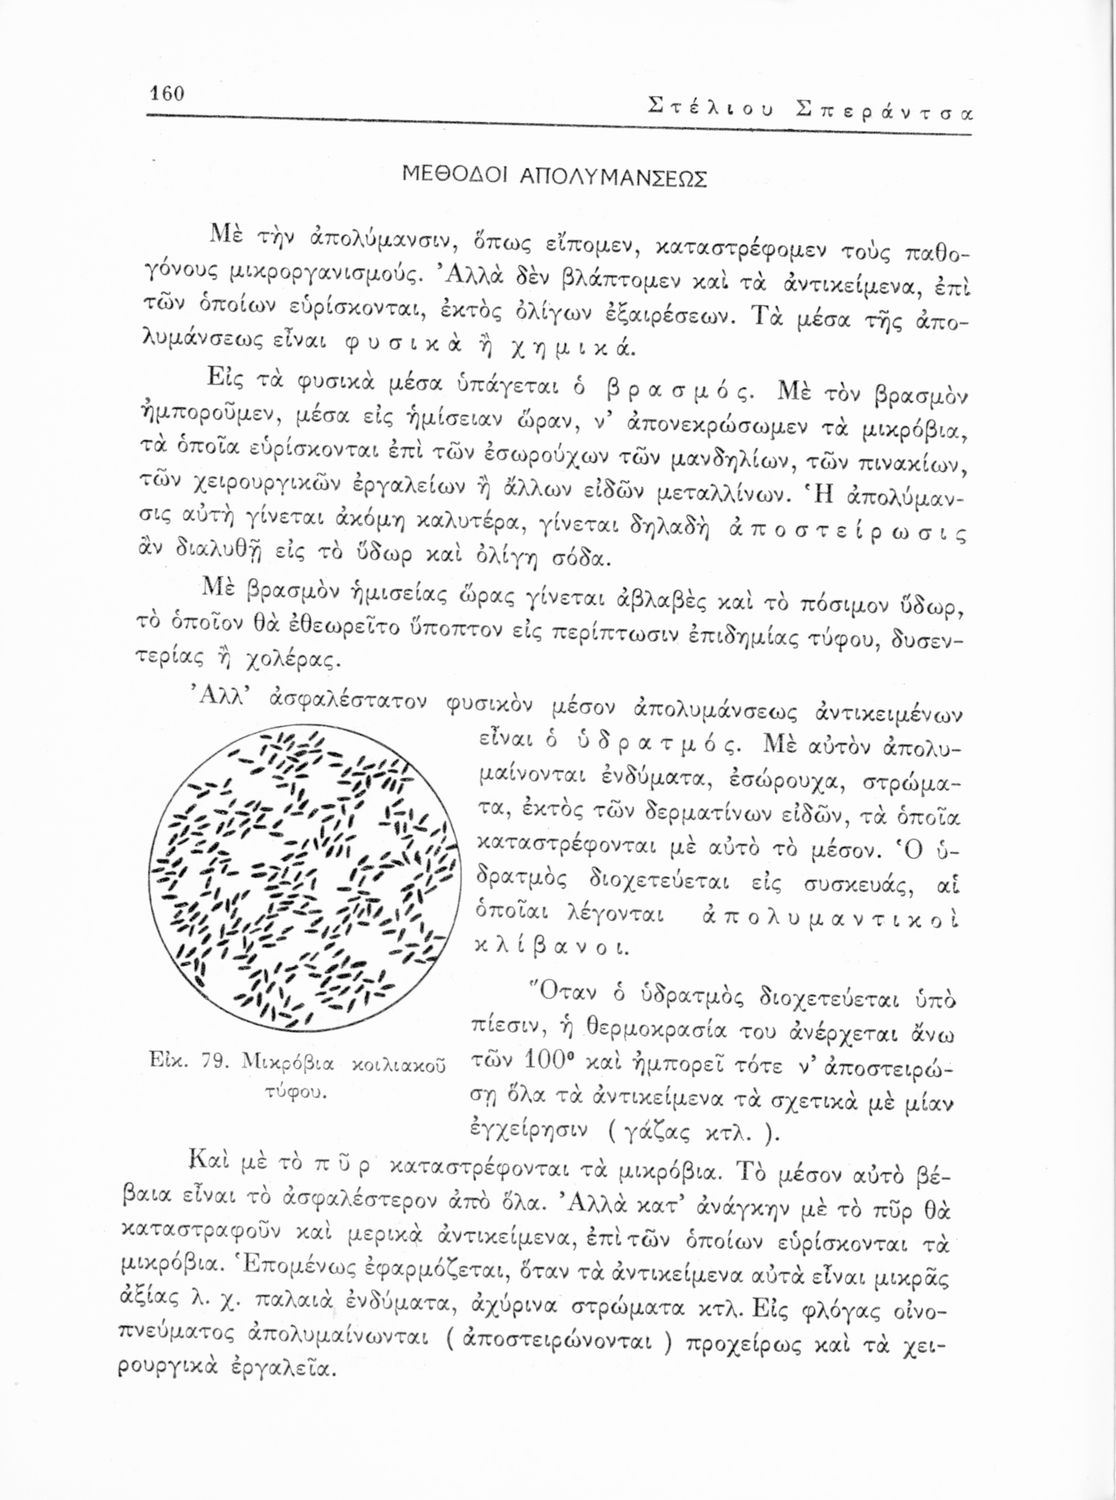 160
Στέλιου Σπεράντσα
ΜΕΘΟΔΟΙ ΑΠΟΛΥΜΑΝΣΕΩΣ
Μὲ τὴν ἀπολύμανσιν, ὅπως εἴπομεν, καταστρέφομεν τοὺς παθο-
γόνους μικροργανισμούς. Ἀλλὰ δὲν βλάπτομεν καὶ τὰ ἀντικείμενα, ἐπὶ
τῶν ὁποίων εὑρίσκονται, ἐκτὸς ὀλίγων ἐξαιρέσεων. Τὰ μέσα τῆς ἀπο-
λυμάνσεως εἶναι φυσικὰ ἢ χημικά.
Εἰς τὰ φυσικὰ μέσα ὑπάγεται ὁ βρασμός. Μὲ τὸν βρασμὸν
ἠμποροῦμεν, μέσα εἰς ἡμίσειαν ὥραν, ν' ἀπονεκρώσωμεν τὰ μικρόβια,
τὰ ὁποῖα εὑρίσκονται ἐπὶ τῶν ἐσωρούχων τῶν μανδηλίων, τῶν πινακίων,
τῶν χειρουργικῶν ἐργαλείων ἢ ἄλλων εἰδῶν μεταλλίνων. Ἡ ἀπολύμαν-
σις αὐτὴ γίνεται ἀκόμη καλυτέρα, γίνεται δηλαδὴ ἀποστείρωσις
ἂν διαλυθῇ εἰς τὸ ὕδωρ καὶ ὀλίγη σόδα.
Μὲ βρασμὸν ἡμισείας ὥρας γίνεται ἀβλαβὲς καὶ τὸ πόσιμον ὕδωρ,
τὸ ὁποῖον θὰ ἐθεωρεῖτο ὕποπτον εἰς περίπτωσιν ἐπιδημίας τύφου, δυσεν-
τερίας ἢ χολέρας.
Ἀλλ' ἀσφαλέστατον φυσικὸν μέσον ἀπολυμάνσεως ἀντικειμένων
εἶναι ὁ ὑδρατμός. Μὲ αὐτὸν ἀπολυ-
μαίνονται ἐνδύματα, ἐσώρουχα, στρώμα-
τα, ἐκτὸς τῶν δερματίνων εἰδῶν, τὰ ὁποῖα
καταστρέφονται μὲ αὐτὸ τὸ μέσον. Ὁ ὑ-
δρατμὸς διοχετεύεται εἰς συσκευάς, αἱ
ὁποῖαι λέγονται ἀπολυμαντικοὶ
κλίβανοι.
Ὅταν ὁ ὑδρατμὸς διοχετεύεται ὑπὸ
πίεσιν, ἡ θερμοκρασία του ἀνέρχεται ἄνω
τῶν 100° καὶ ἠμπορεῖ τότε ν' ἀποστειρώ-
σῃ ὅλα τὰ ἀντικείμενα τὰ σχετικὰ μὲ μίαν
ἐγχείρησιν ( γάζας κτλ. ).
Εἰκ. 79. Μικρόβια κοιλιακοῦ
τύφου.
Καὶ μὲ τὸ πῦρ καταστρέφονται τὰ μικρόβια. Τὸ μέσον αὐτὸ βέ-
βαια εἶναι τὸ ἀσφαλέστερον ἀπὸ ὅλα. Ἀλλὰ κατ' ἀνάγκην μὲ τὸ πῦρ θὰ
καταστραφοῦν καὶ μερικὰ ἀντικείμενα, ἐπὶ τῶν ὁποίων εὑρίσκονται τὰ
μικρόβια. Ἑπομένως ἐφαρμόζεται, ὅταν τὰ ἀντικείμενα αὐτὰ εἶναι μικρᾶς
ἀξίας λ. χ. παλαιὰ ἐνδύματα, ἀχύρινα στρώματα κτλ. Εἰς φλόγας οἰνο-
πνεύματος ἀπολυμαίνωνται ( ἀποστειρώνονται ) προχείρως καὶ τὰ χει-
ρουργικὰ ἐργαλεῖα.